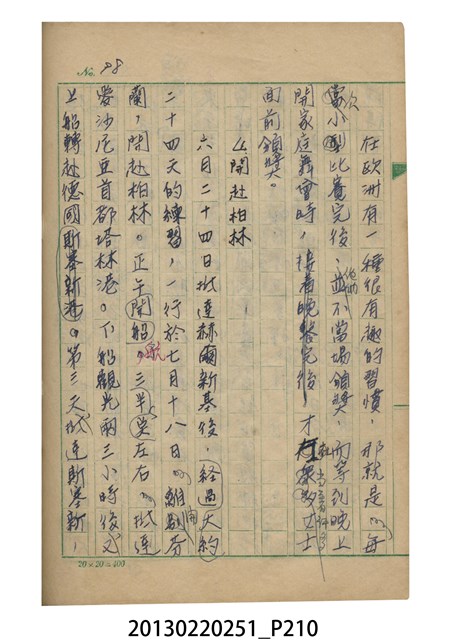 No. 28
在歐洲有一種很有趣的習慣，那就是每
次當小型比賽完後，他們並不當場頒獎，而等到晚上
開家庭舞會時，接着晚餐完後，才在眾多女士
面前頒獎。
△開赴柏林
六月二十四日抵達赫爾新基後，經過大約
二十四天的練習，一行於七月十八日離開芬
蘭，開赴柏林。正午開船，航三半左右抵達
愛沙尼亞首都塔林港。下船觀光兩三小時後又
上船轉赴德國斯塞新港。第三天抵達斯塞新，
20×20=400
20130220251_P210